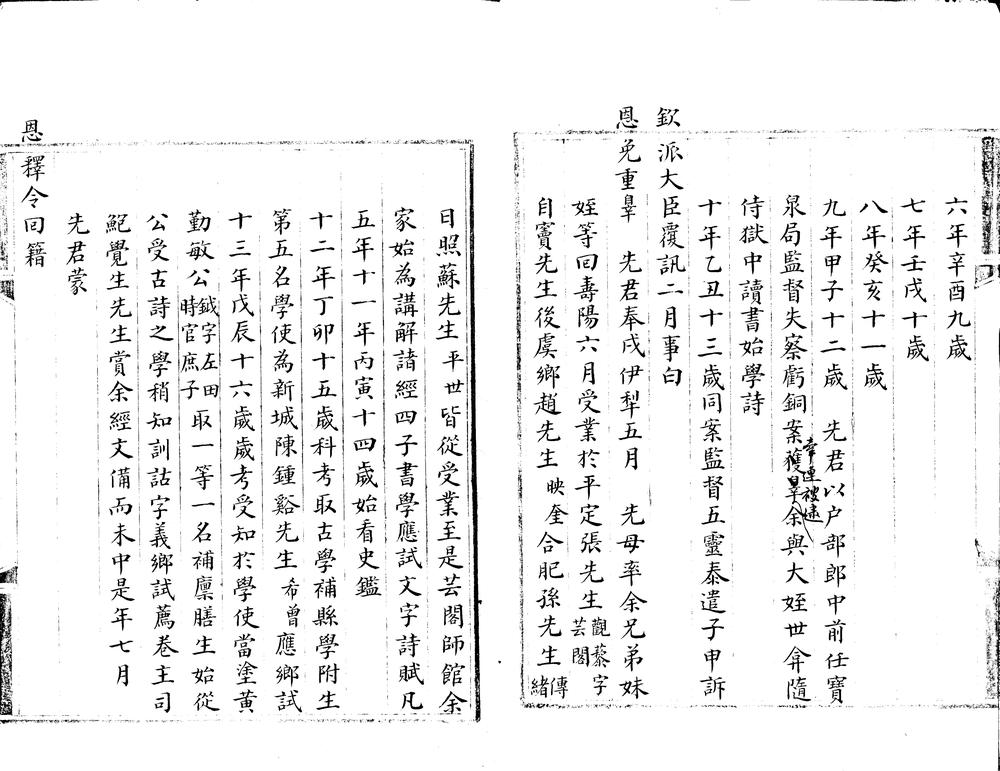 六年辛酉九歲
七年壬戌十歲
八年癸亥十一歲
九年甲子十二歲　先君以户部郎中前任寶
泉局監督失察虧銅案獲辠牽連被逮余與大姪世弇隨
侍獄中讀書始學詩
十年乙丑十三歲同案監督五靈泰遣子申訴
欽派大臣覆訊二月事白
恩免重辠　先君奉戍伊犁五月　先母率余兄弟妹
姪等回壽陽六月受業於平定張先生觀藜字芸閣
自竇先生後虞鄉趙先生映奎合肥孫先生傳緒
日照蘇先生平世皆從受業至是芸閣師館余
家始為講解諸經四子書學應試文字詩賦凡
五年十一年丙寅十四歲始看史鑑
十二年丁卯十五歲科考取古學補縣學附生
第五名學使為新城陳鍾谿先生希曾應鄉試
十三年戊辰十六歲歲考受知於學使當塗黃
勤敏公鉞字左田時官庶子取一等一名補廩膳生始從
公受古詩之學稍知訓詁字義鄉試薦卷主司
鮑覺生先生賞余經文備而未中是年七月
先君蒙
恩釋令回籍